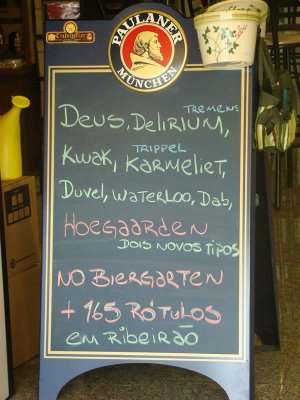 PAULANER
MÜNCHEN
TREMENS
DEUS, DELIRIUM,
TRIPPEL
KWAK, KARMELIET,
DUVEL, WATERLOO, DAB,
HOEGAARDEN
DOIS NOVOS TIPOS
NO BIERGARTEN
+ 165 RÓTULOS
EM RIBEIRÃO